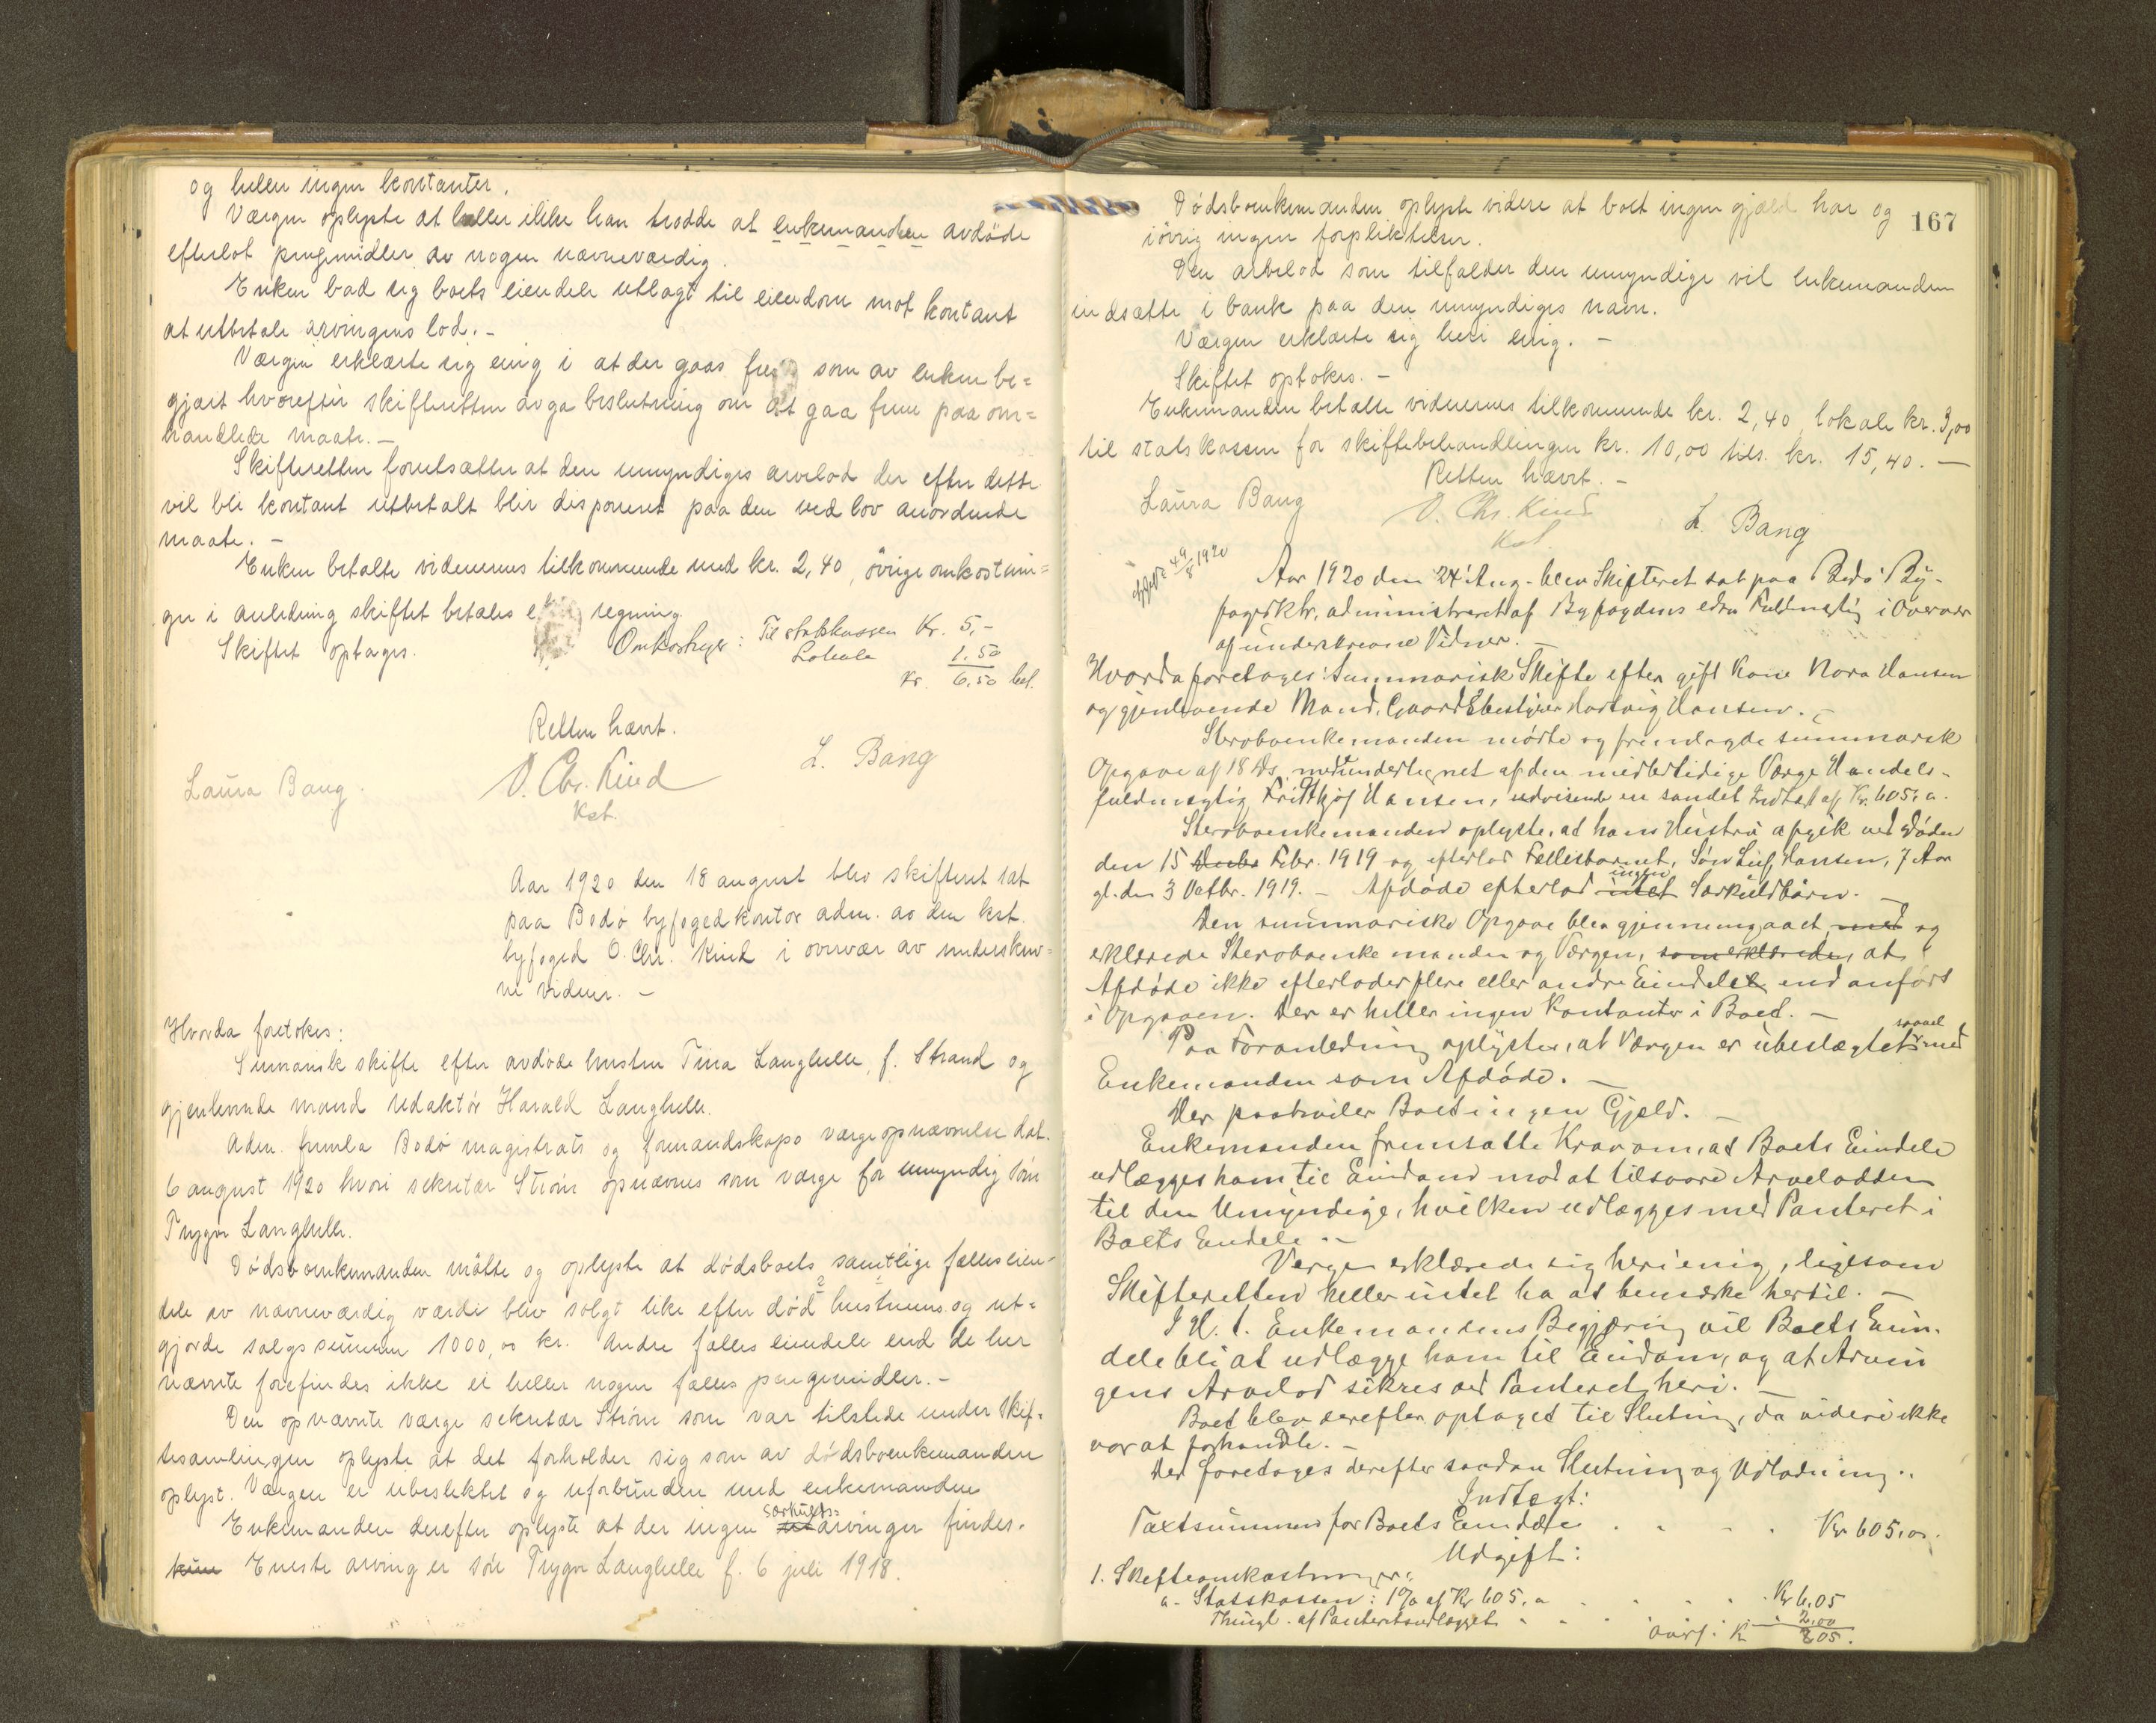 og heller ingen kontanter.
Værgen oplyste at heller ikke han trodde at enkemanden avdöde
efterlot pengemidler av nogen nævneværdig.
Enken bad sig boets eiendele utlagt til eiendom mot kontant
at utbetale arvingens lod. -
Værgen erklærte sig enig i at der gaas frem som av enken be=
gjært hvorefter skifteretten avga beslutning om at gaa frem paa om=
handlede maate. -
Skifteretten forutsætter at den umyndiges arvelod der efter dette
vil bli kontant utbetalt blir disponeret paa den ved lov anordnede
maate. -
Enken betalte vidnernes tilkommende med kr. 2,40, övrige omkostnin=
ger i anledning skiftet betales e regning.
Skiftet optages.
Omkostnger: Til statskassen Kr. 5,-
Lokale 1.50
Kr. 6,50 bet.
Retten hævet.
Laura Bang.
O. Chr. Kind
Kst.
L. Bang
Aar 1920 den 18 august blev skifteret sat
paa Bodö byfogedkontor adm. av den kst.
byfoged O. Chr. Kind i overvær av underskrev=
ne vidner. -
Hvorda foretokes:
Summarisk skifte efter avdöde hustru Tina Langhelle, f. Strand og
gjenlevende mand redaktör Harald Langhelle.
Adm. fremla Bodö magistrats og formandskaps værgeopnævnelse dat.
6 august 1920 hvori sekretær Ström opnævnes som værge for umyndig sön
Trygve Langhelle.
Dödsboenkemanden mötte og oplyste at dödsboets samtlige fælleseien-
dele av nævneværdig værdi blev solgt like efter död hustruens og ut=
gjorde salgssummen 1000,00 kr. Andre fælles eiendele end de her
nævnte forefindes ikke ei heller nogen fælles pengemidler. -
Den opnævnte værge sekretær Ström som var tilstede under skif=
tesamlingen oplyste at det forholder sig som av dödsboenkemanden
oplyst. Værgen er ubeslektet og uforbunden med enkemanden
Enkemanden derefter oplyste at der ingen særkulls= arvinger findes.
Eneste arving er sön Trygve Langhelle f. 6 juli 1918.
167
Dödsboenkemanden oplyste videre at boet ingen gjæld har og
iövrig ingen forpliktelser.
Den arvelod som tilfalder den umyndige vil enkemanden
indsætte i bank paa den umyndiges navn.
Værgen erklærte sig heri enig. -
Skiftet optokes. -
Enkemanden betalte vidnernes tilkommende kr. 2,40, lokale kr. 3,00
til statskassen for skiftebehandlingen kr. 10,00 tils. kr. 15,40. -
Retten hævet. -
Laura Bang
O. Chr. Kind
Kst.
L. Bang
Aar 1920 den 24' Aug. blev Skifteret sat paa Bodö By-
fogedktr, administreret af Byfogdens edsv Fuldmægtig i Overvær
af underskrevne Vidner. -
Hvorda foretages: Summarisk Skifte efter gift Kone Nora Hansen
og gjenlevende Mand, Gaardsbestyrer Hartvig Hansen. -
Stervboenkemanden mödte og fremlagde summarisk
Opgave af 18 ds. medundertegnet af den midlertidige Værge Handels-
fuldmægtig Fridtjof Hansen, udvisende en samlet Indtægt af Kr. 605,00.
Stervboenkemanden oplyste, at hans Hustru afgik ved Döden
den 15 Febr. 1919 og efterlod Fællesbarnet, Sön Leif Hansen, 7 Aar
gl. den 3 Octbr. 1919. - Afdöde efterlod intet ingen Særkuldbörn. -
Den summariske Opgave blev gjennemgaaet med og
erklærede Stervboenkemanden og Værgen, som erklærede, at
Afdöde ikke efterlader flere eller andre Eiendele end anfört
i Opgaven. Der er heller ingen Kontanter i Boet. -
Paa Foranledning oplystes, at Værgen er ubeslægtet saavel med
Enkemanden som Afdöde. -
Der paahviler Boet ingen Gjæld. -
Enkemanden fremsatte Krav om, at Boets Eiendele
udlægges ham til Eiendom mod at tilsvare Arvelodden
til den Umyndige, hvilken udlægges med Panteret i
Boets Eiendele. -
Vergen erklærede sig heri enig, ligesom
Skifteretten heller intet ha at bemærke hertil. -
I H. t. Enkemandens Begjæring vil Boets Eien-
dele bli at udlægge ham til Eiendom, og at Arvin
gens Arvelod sikres ved Panteret heri. -
Boet blev derefter optaget til Slutning, da videre ikke
var at forhandle. -
Der foretages derefter saadan Slutning og Udlodning..
Indtægt:
Taxtsummen for Boets Eiendele . . . . Kr 605,00.
Udgift:
1. Skifteomkostninger:
a. Statskassen: 1% af Kr 605,00 . . . . Kr 6,05
Thingl. af Panteretsudlægget . . . . 2,00
Overf. Kr 8,05.